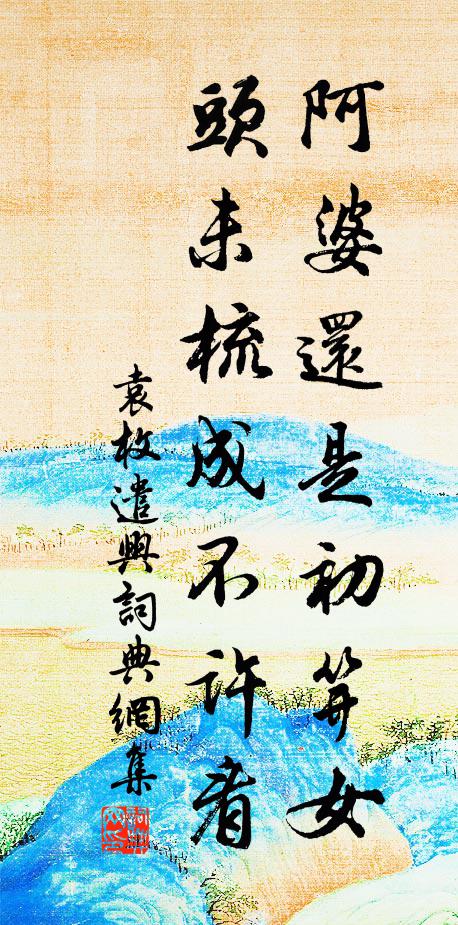 阿婆還是初笄女
頭未梳成不許看
袁枚遣興詞典網集